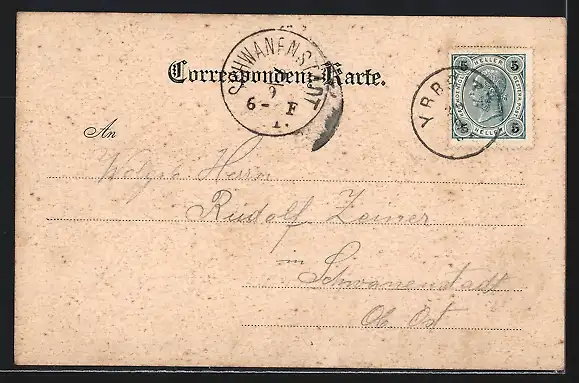 Correspondenz-Karte.
SCHWANENSTADT
9
6-F
1.
5 HELLER 5
5 HELLER 5
YBBS
An
Wolgb Herrn
Rudolf Zeiner
in Schwanenstadt
Ob Öst